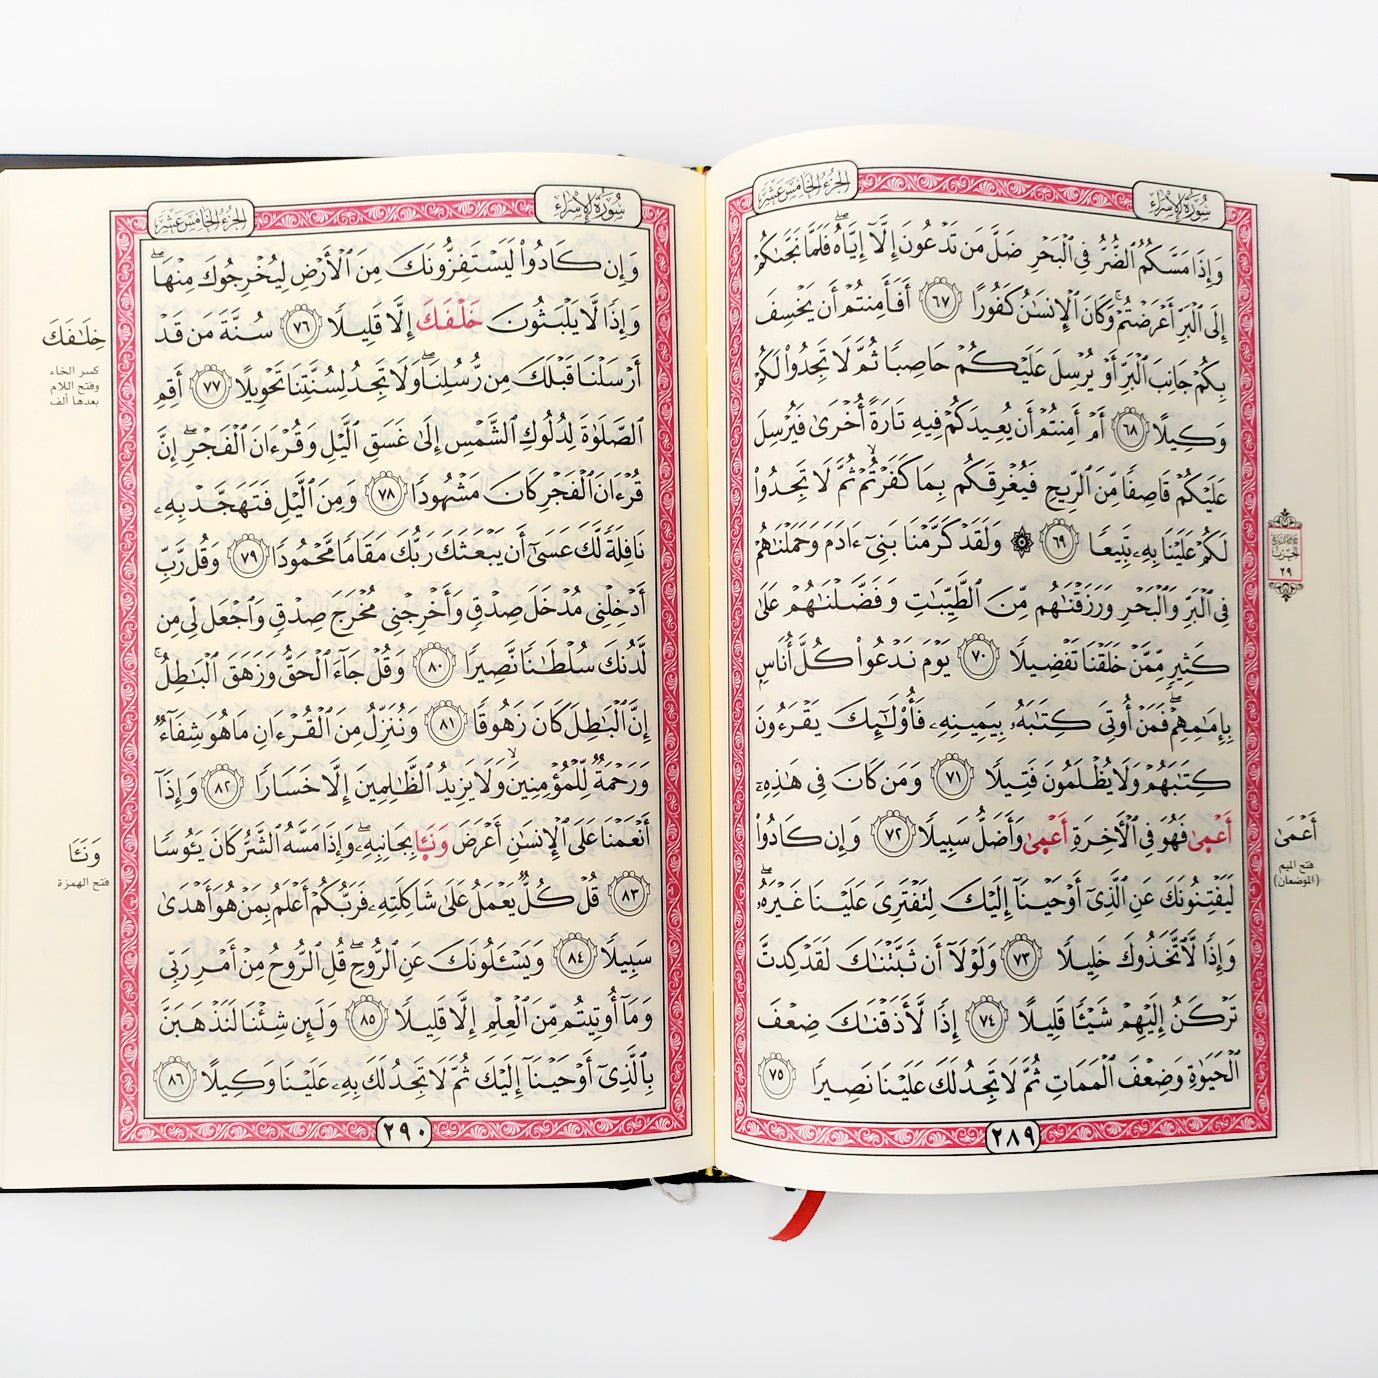 سُورَةُ الإِسْرَاءِ
الجُزءُ الخَامِسَ عَشَرَ
وَإِذَا مَسَّكُمُ ٱلضُّرُّ فِي ٱلْبَحْرِ ضَلَّ مَن تَدْعُونَ إِلَّآ إِيَّاهُۖ فَلَمَّا نَجَّىٰكُمْ
إِلَى ٱلْبَرِّ أَعْرَضْتُمْۚ وَكَانَ ٱلْإِنسَٰنُ كَفُورًا ٦٧ أَفَأَمِنتُمْ أَن يَخْسِفَ
بِكُمْ جَانِبَ ٱلْبَرِّ أَوْ يُرْسِلَ عَلَيْكُمْ حَاصِبًا ثُمَّ لَا تَجِدُوا۟ لَكُمْ
وَكِيلًا ٦٨ أَمْ أَمِنتُمْ أَن يُعِيدَكُمْ فِيهِ تَارَةً أُخْرَىٰ فَيُرْسِلَ
عَلَيْكُمْ قَاصِفًا مِّنَ ٱلرِّيحِ فَيُغْرِقَكُم بِمَا كَفَرْتُمْۙ ثُمَّ لَا تَجِدُوا۟
لَكُمْ عَلَيْنَا بِهِۦ تَبِيعًا ٦٩ ۞ وَلَقَدْ كَرَّمْنَا بَنِيٓ ءَادَمَ وَحَمَلْنَٰهُمْ
فِي ٱلْبَرِّ وَٱلْبَحْرِ وَرَزَقْنَٰهُم مِّنَ ٱلطَّيِّبَٰتِ وَفَضَّلْنَٰهُمْ عَلَىٰ
كَثِيرٍ مِّمَّنْ خَلَقْنَا تَفْضِيلًا ٧٠ يَوْمَ نَدْعُوا۟ كُلَّ أُنَاسٍۭ
بِإِمَٰمِهِمْۖ فَمَنْ أُوتِيَ كِتَٰبَهُۥ بِيَمِينِهِۦ فَأُو۟لَٰٓئِكَ يَقْرَءُونَ
كِتَٰبَهُمْ وَلَا يُظْلَمُونَ فَتِيلًا ٧١ وَمَن كَانَ فِي هَٰذِهِۦٓ
أَعْمَىٰ فَهُوَ فِي ٱلْأَخِرَةِ أَعْمَىٰ وَأَضَلُّ سَبِيلًا ٧٢ وَإِن كَادُوا۟
لَيَفْتِنُونَكَ عَنِ ٱلَّذِيٓ أَوْحَيْنَآ إِلَيْكَ لِتَفْتَرِيَ عَلَيْنَا غَيْرَهُۥۖ
وَإِذًا لَّٱتَّخَذُوكَ خَلِيلًا ٧٣ وَلَوْلَآ أَن ثَبَّتْنَٰكَ لَقَدْ كِدتَّ
تَرْكَنُ إِلَيْهِمْ شَيْـًٔا قَلِيلًا ٧٤ إِذًا لَّأَذَقْنَٰكَ ضِعْفَ
ٱلْحَيَوٰةِ وَضِعْفَ ٱلْمَمَاتِ ثُمَّ لَا تَجِدُ لَكَ عَلَيْنَا نَصِيرًا ٧٥
٢٨٩
الحِزْب
٢٩
أَعْمَىٰ
فتح الميم
(الموضعان)
سُورَةُ الإِسْرَاءِ
الجُزءُ الخَامِسَ عَشَرَ
وَإِن كَادُوا۟ لَيَسْتَفِزُّونَكَ مِنَ ٱلْأَرْضِ لِيُخْرِجُوكَ مِنْهَاۖ
وَإِذًا لَّا يَلْبَثُونَ خَلْفَكَ إِلَّا قَلِيلًا ٧٦ سُنَّةَ مَن قَدْ
أَرْسَلْنَا قَبْلَكَ مِن رُّسُلِنَاۖ وَلَا تَجِدُ لِسُنَّتِنَا تَحْوِيلًا ٧٧ أَقِمِ
ٱلصَّلَوٰةَ لِدُلُوكِ ٱلشَّمْسِ إِلَىٰ غَسَقِ ٱلَّيْلِ وَقُرْءَانَ ٱلْفَجْرِۖ إِنَّ
قُرْءَانَ ٱلْفَجْرِ كَانَ مَشْهُودًا ٧٨ وَمِنَ ٱلَّيْلِ فَتَهَجَّدْ بِهِۦ
نَافِلَةً لَّكَ عَسَىٰٓ أَن يَبْعَثَكَ رَبُّكَ مَقَامًا مَّحْمُودًا ٧٩ وَقُل رَّبِّ
أَدْخِلْنِي مُدْخَلَ صِدْقٍ وَأَخْرِجْنِي مُخْرَجَ صِدْقٍ وَٱجْعَل لِّي مِن
لَّدُنكَ سُلْطَٰنًا نَّصِيرًا ٨٠ وَقُلْ جَآءَ ٱلْحَقُّ وَزَهَقَ ٱلْبَٰطِلُۚ
إِنَّ ٱلْبَٰطِلَ كَانَ زَهُوقًا ٨١ وَنُنَزِّلُ مِنَ ٱلْقُرْءَانِ مَا هُوَ شِفَآءٌ
وَرَحْمَةٌ لِّلْمُؤْمِنِينَۙ وَلَا يَزِيدُ ٱلظَّٰلِمِينَ إِلَّا خَسَارًا ٨٢ وَإِذَآ
أَنْعَمْنَا عَلَى ٱلْإِنسَٰنِ أَعْرَضَ وَنَـَٔا بِجَانِبِهِۦۖ وَإِذَا مَسَّهُ ٱلشَّرُّ كَانَ يَـُٔوسًا
٨٣ قُلْ كُلٌّ يَعْمَلُ عَلَىٰ شَاكِلَتِهِۦ فَرَبُّكُمْ أَعْلَمُ بِمَنْ هُوَ أَهْدَىٰ
سَبِيلًا ٨٤ وَيَسْـَٔلُونَكَ عَنِ ٱلرُّوحِۖ قُلِ ٱلرُّوحُ مِنْ أَمْرِ رَبِّي
وَمَآ أُوتِيتُم مِّنَ ٱلْعِلْمِ إِلَّا قَلِيلًا ٨٥ وَلَئِن شِئْنَا لَنَذْهَبَنَّ
بِٱلَّذِيٓ أَوْحَيْنَآ إِلَيْكَ ثُمَّ لَا تَجِدُ لَكَ بِهِۦ عَلَيْنَا وَكِيلًا ٨٦
٢٩٠
خِلَٰفَكَ
كسر الخاء
وفتح اللام
بعدها ألف
وَنَـَٔا
فتح الهمزة